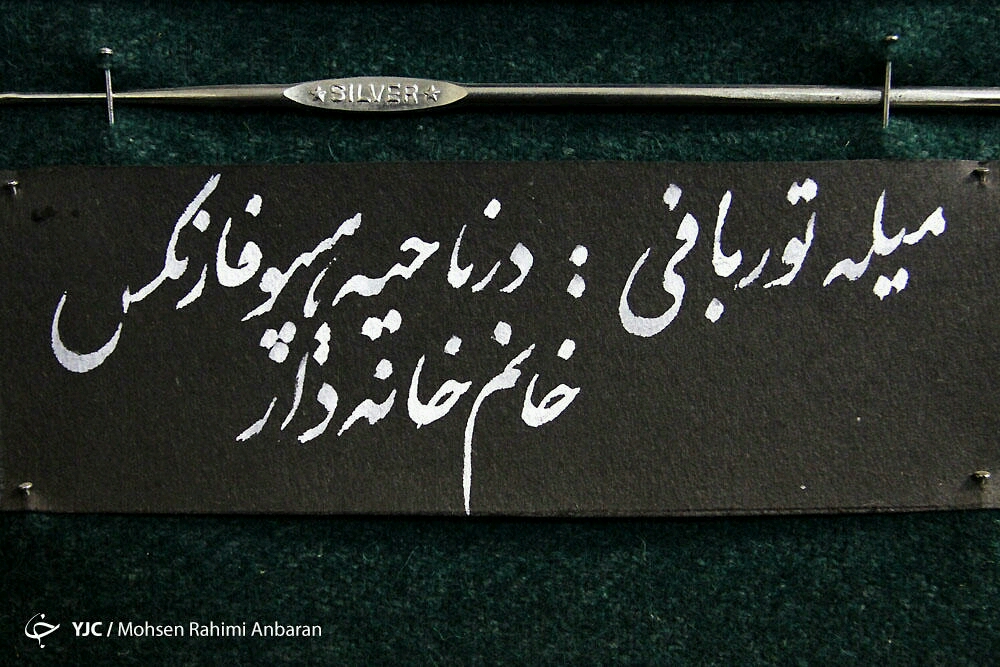 ★SILVER★
میله توربافی : در ناحیه هیپوفارنکس
خانم خانه دار
YJC / Mohsen Rahimi Anbaran